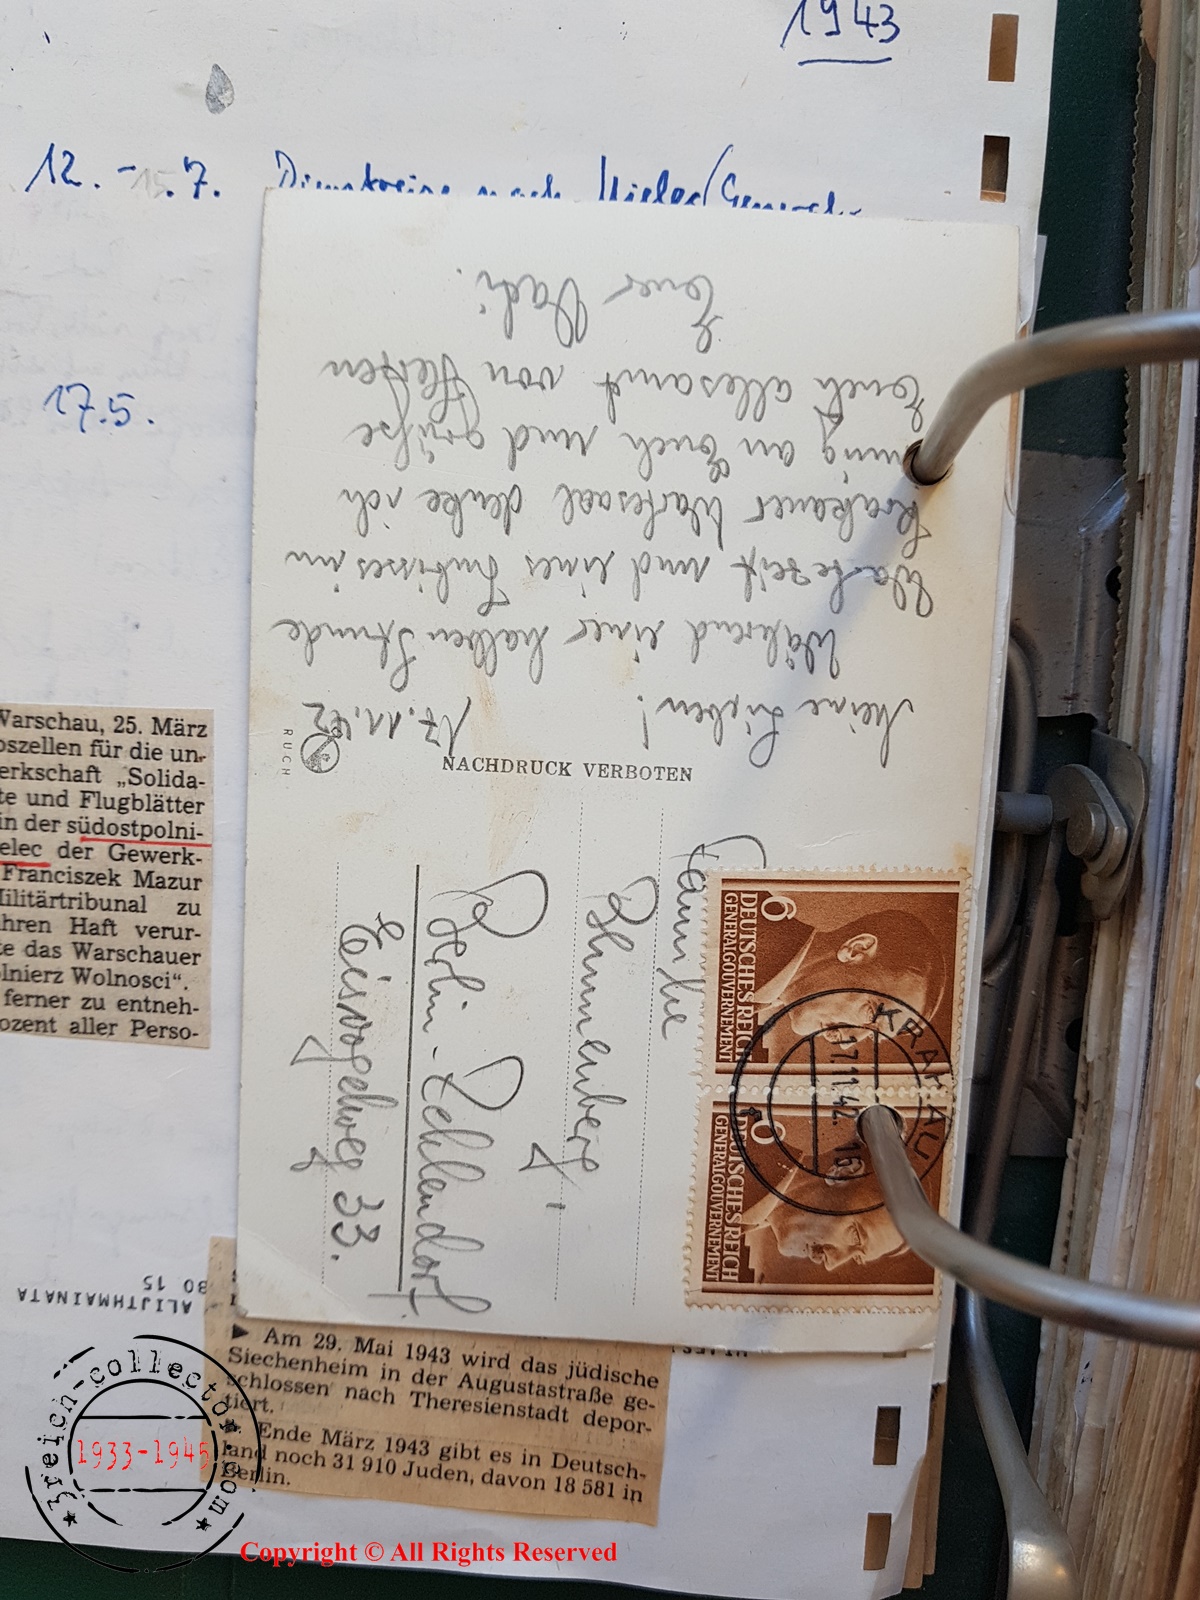 1943
12. - 15.7. Dienstreise nach Mielec/General-
17.5.
Meine Lieben!
17.11.42
Während einer halben Stunde
Wartezeit und eines Imbisses im
Krakauer Wartesaal denke ich
innig an Euch und grüße
Euch allesamt von Herzen
Euer Vati.
NACHDRUCK VERBOTEN
RUCH
Familie
Blumenberg
Berlin-Zehlendorf.
Eisvogelweg 33.
6
DEUTSCHES REICH
GENERALGOUVERNEMENT
6
DEUTSCHES REICH
GENERALGOUVERNEMENT
KRAKAU
17.11.42. 16
Warschau, 25. März
oszellen für die un-
erkschaft „Solida-
te und Flugblätter
in der südostpolni-
elec der Gewerk-
Franciszek Mazur
Militärtribunal zu
ahren Haft verur-
te das Warschauer
olnierz Wolnosci“.
ferner zu entneh-
ozent aller Perso-
ALIJTHMAINATA
80 15
► Am 29. Mai 1943 wird das jüdische
Siechenheim in der Augustastraße ge-
schlossen nach Theresienstadt depor-
tiert.
Ende März 1943 gibt es in Deutsch-
land noch 31 910 Juden, davon 18 581 in
Berlin.
3reich-collector.com
1933-1945
Copyright © All Rights Reserved